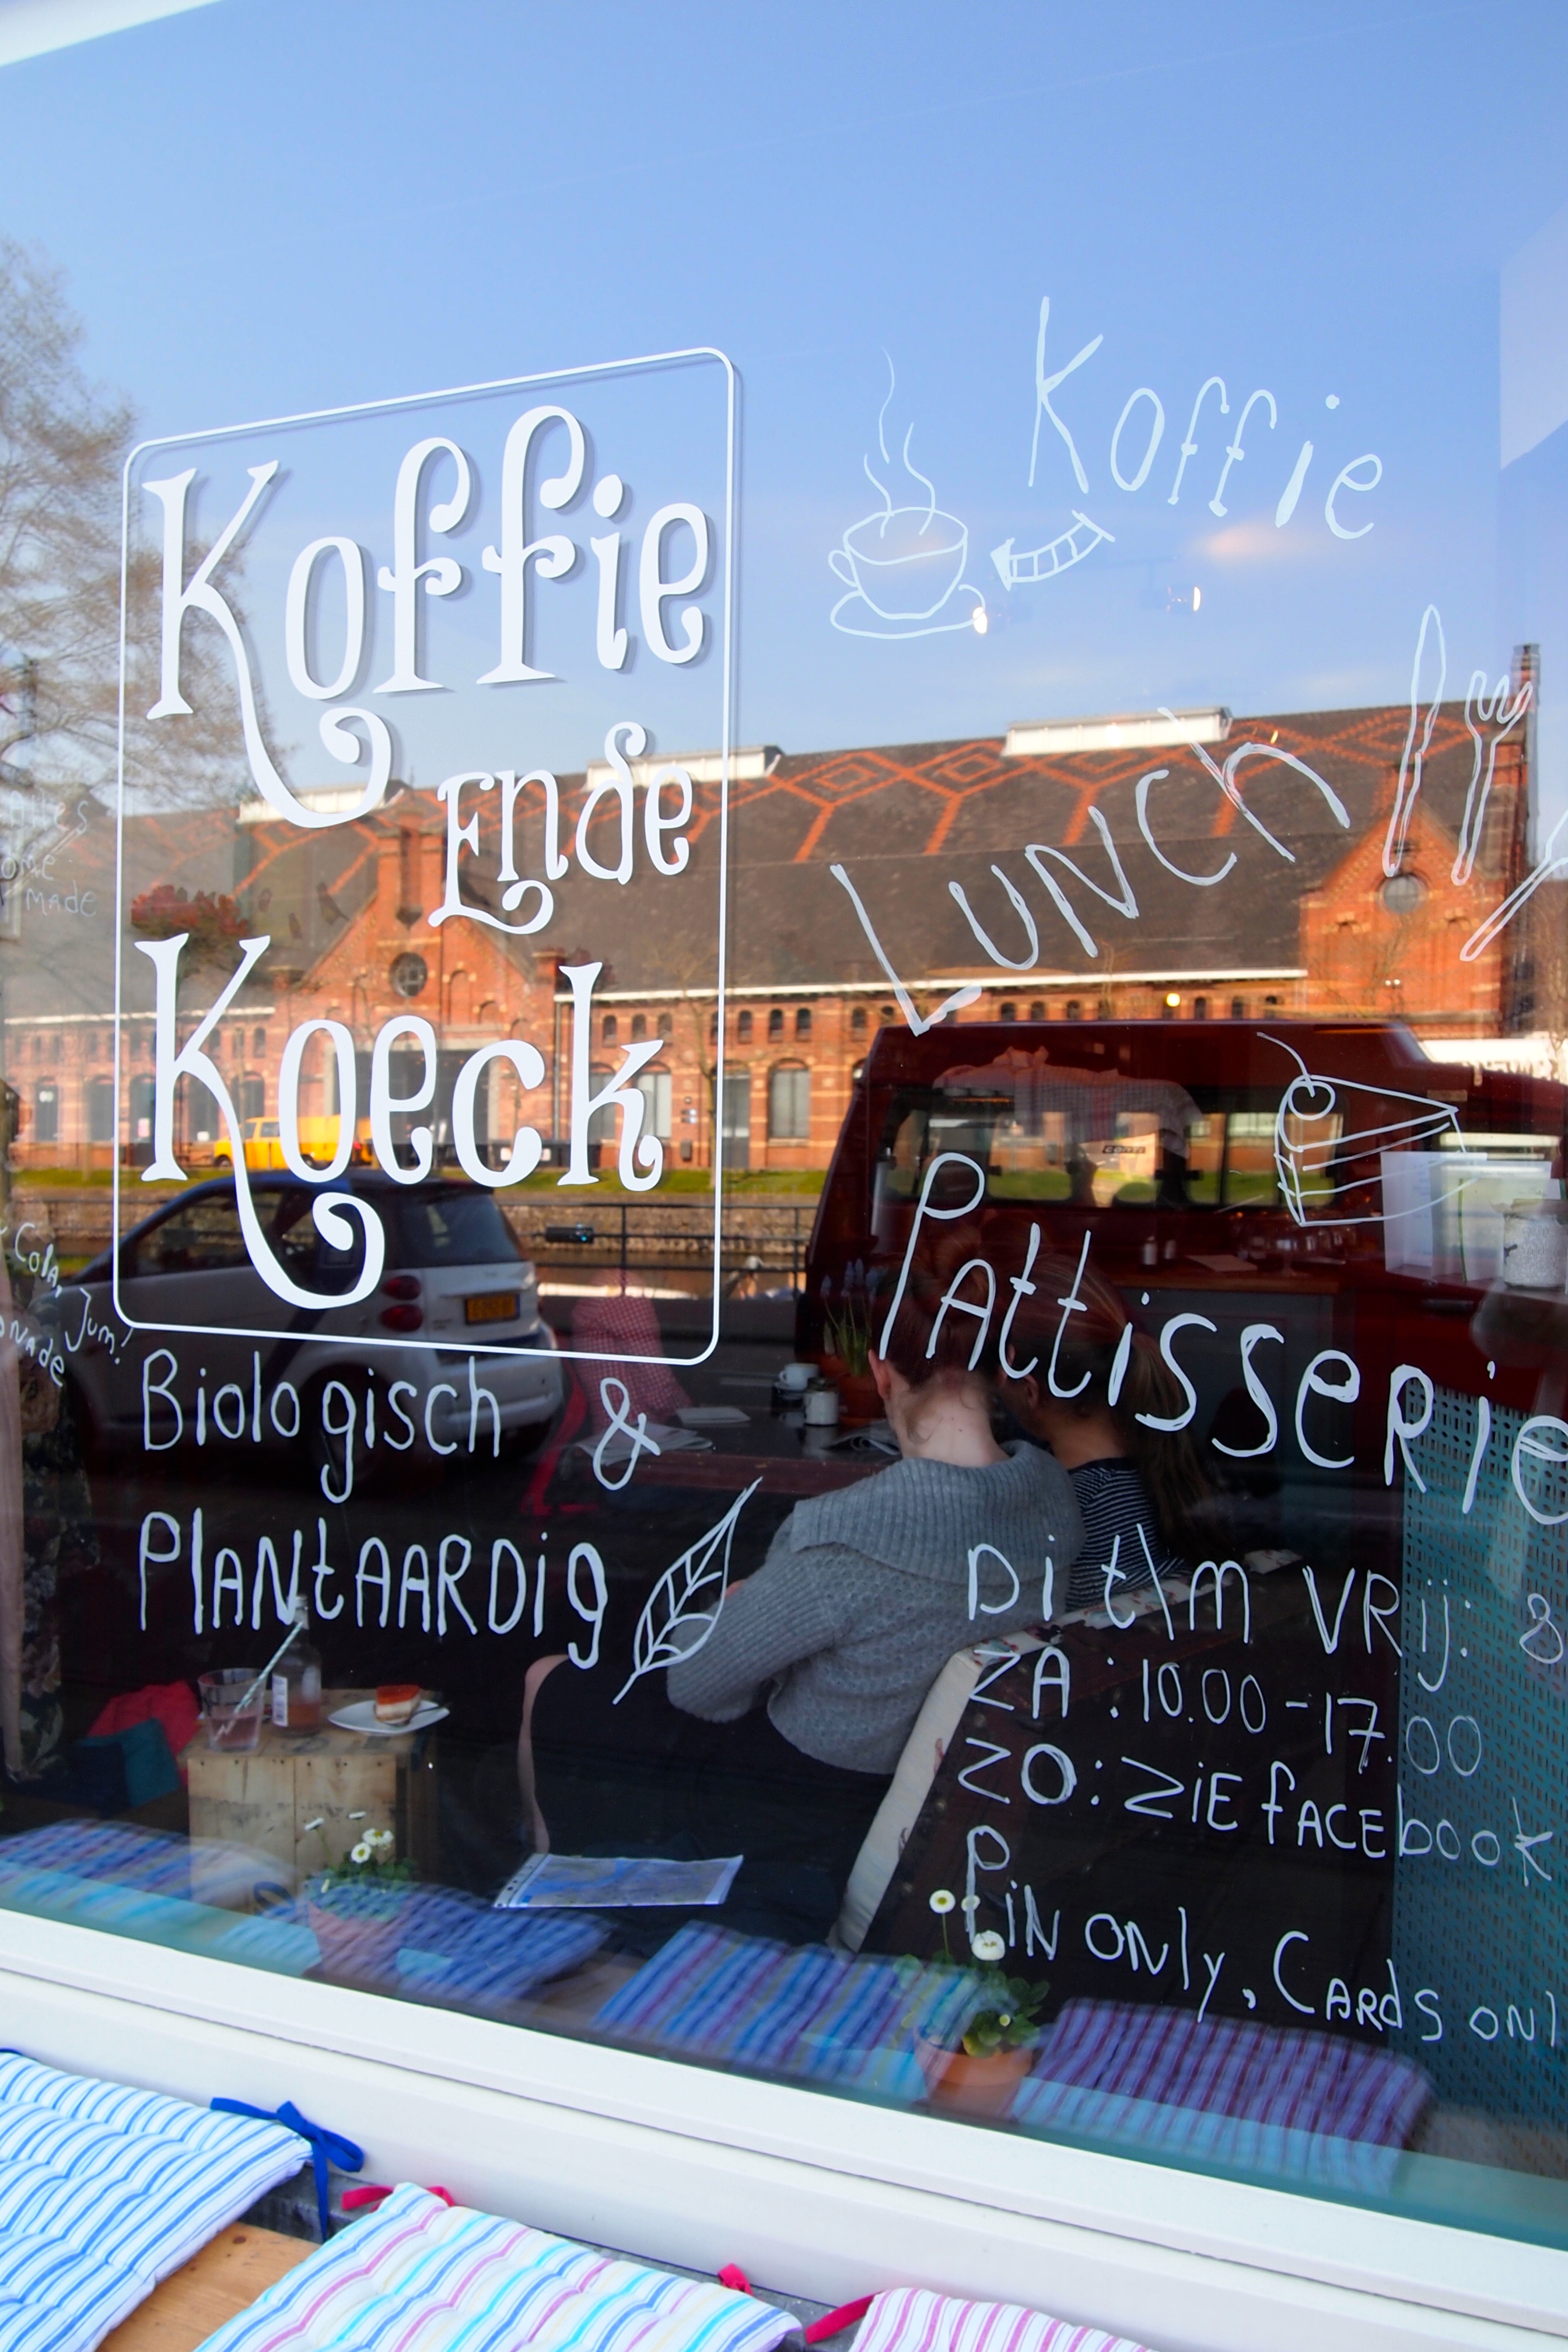 Koffie
Ende
Koeck
Biologisch &
Plantaardig
Koffie
Lunch
Pattisserie
Di t\m Vrij: 8
ZA : 10.00 - 17.00
ZO: Zie facebook
Pin only, Cards
made
Cola,
Jum!